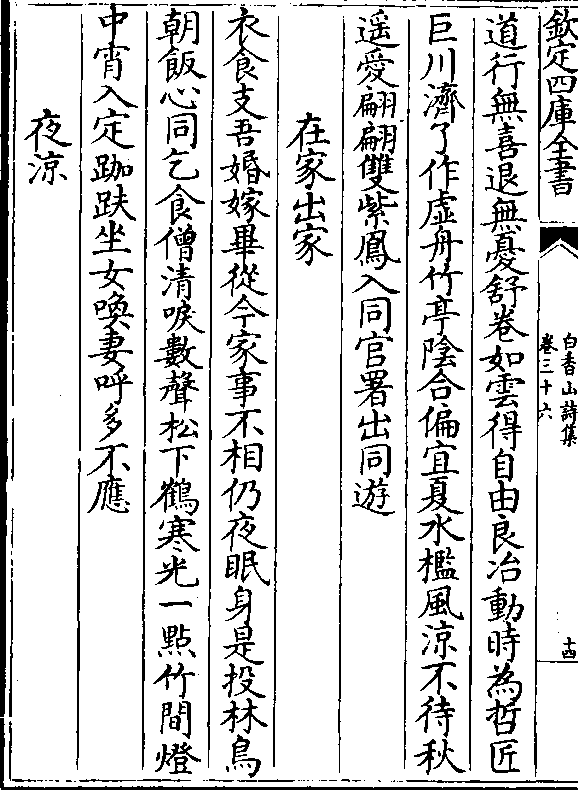 欽定四庫全書
白香山詩集
卷三十六
十四
道行無喜退無憂舒卷如雲得自由良冶動時為哲匠
巨川濟了作虛舟竹亭陰合偏宜夏水檻風涼不待秋
遥愛翩翩雙紫鳳入同官署出同遊
在家出家
衣食支吾婚嫁畢從今家事不相仍夜眠身是投林鳥
朝飯心同乞食僧清唳數聲松下鶴寒光一點竹間燈
中宵入定跏趺坐女喚妻呼多不應
夜涼